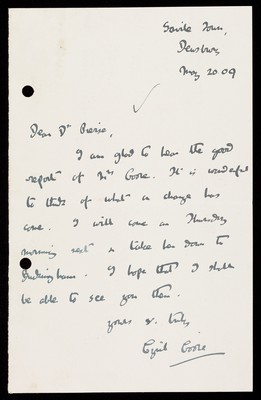 Savile Town,
Dewsbury
May 20 09
Dear Dr Pierse,
I am glad to hear the good
report of Mrs Coore. It is wonderful
to think of what a change has
come. I will come on Thursday
morning next & take her down to
Buckingham. I hope that I shall
be able to see you then.
Yours v. truly
Cyril Coore